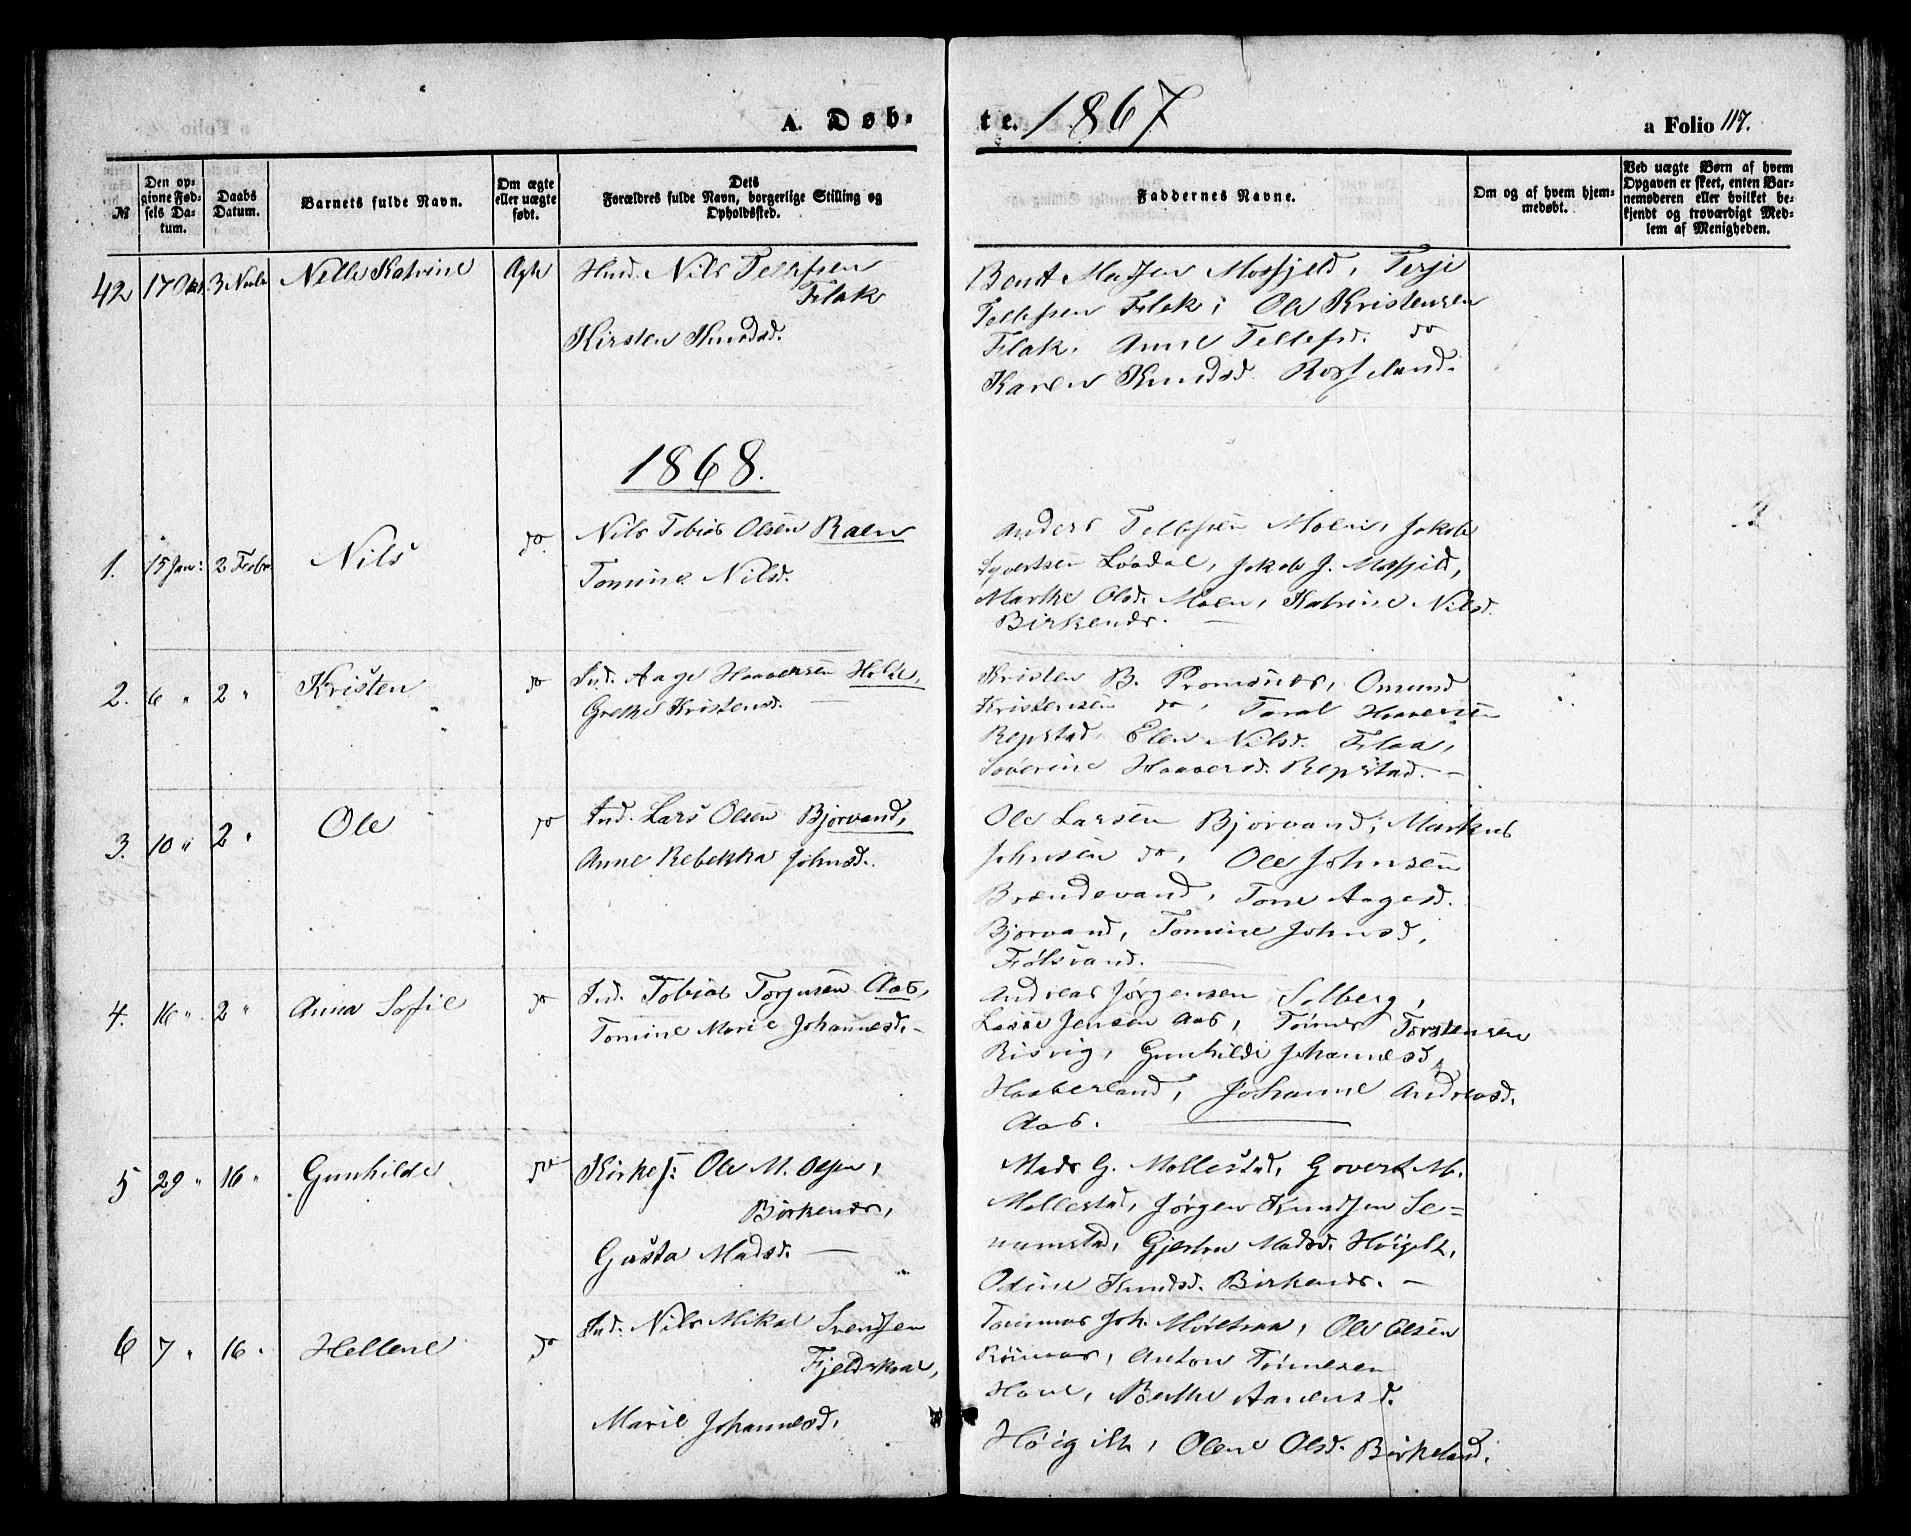 A. Døb-
te. 1867
a Folio 117.
№
Den op-
givne Fød-
sels Da-
tum.
Daabs
Datum.
Barnets fulde Navn.
Om ægte
eller uægte
født.
Dets
Forældres fulde Navn, borgerlige Stilling og
Opholdssted.
Faddernes Navne.
Om og af hvem hjem-
medøbt.
Ved uægte Børn af hvem
Opgaven er skeet, enten Bar-
nemoderen eller hvilket be-
kjendt og troværdigt Med-
lem af Menigheden.
42 17 Okt. 3 Novbr Nelle Katrine Ægte
Nils Tellefsen
Flak
Kirsten Knudsd.
Bent Madsen Mosfjeld, Terje
Tellefsen Flak, Ole Kristensen
Flak, Anne Tellefsd. do
Karen Knudsd. Rosseland.
1868.
1. 15 Jan: 2 Febr. Nils do.
Nils Tobias Olsen Raen
Tomine Nilsd.
Anders Tellefsen Moen, Jakob
Syvertsen Løvdal, Jakob J. Mosfjeld,
Marthe Olsd. Moen, Katrine Nilsd.
Birkenæs. —
2. 6 " 2 " Kristen do
Ind. Aage Haaversen Holte,
Grethe Kristensd. —
Kristen B. Omund
Kristensen do, Taral Haaversen
Repstad, Elen Nilsd. Flaa,
Severine Haaversd. Repstad. —
3. 10 " 2 " Ole do
Ind. Lars Olsen Bjorvand,
Anne Rebekka Johnsd.
Ole Larsen Bjorvand, Markus
Johnsen do, Ole Johnsen
Brændevand, Tone Aagesd.
Bjorvand, Tomine Johnsd,
Følsvand. —
4. 16 " 2 " Anna Sofie do
Ind. Tobias Torjusen Aas,
Tomine Marie Johannesd. —
Andreas Jørgensen Solberg,
Lasse Jensen Aas, Tønnes Torstensen
Risvig, Gunhilde Johannesd,
Haaberland, Johanne Andreasd.
Aas. —
5 29 " 16 " Gunhilde do
Kirkes: Ole M. Olsen,
Birkenæs,
Gusta Madsd. —
Mads G. Mollestad, Govert M.
Mollestad, Jørgen Knudsen Se=
numstad, Gjertru Madsd. Høigilt,
Odine Knudsd. Birkenæs. —
6 7 " 16 " Hellene do
Ind. Nils Mikal Svendsen
Fjeldskaar,
Marie Johannesd,
Tommas Joh. Ole Olsen
Anton Tønnesen
Berthe Aanensd.
Høigilt, Olene Olsd. Birkeland.